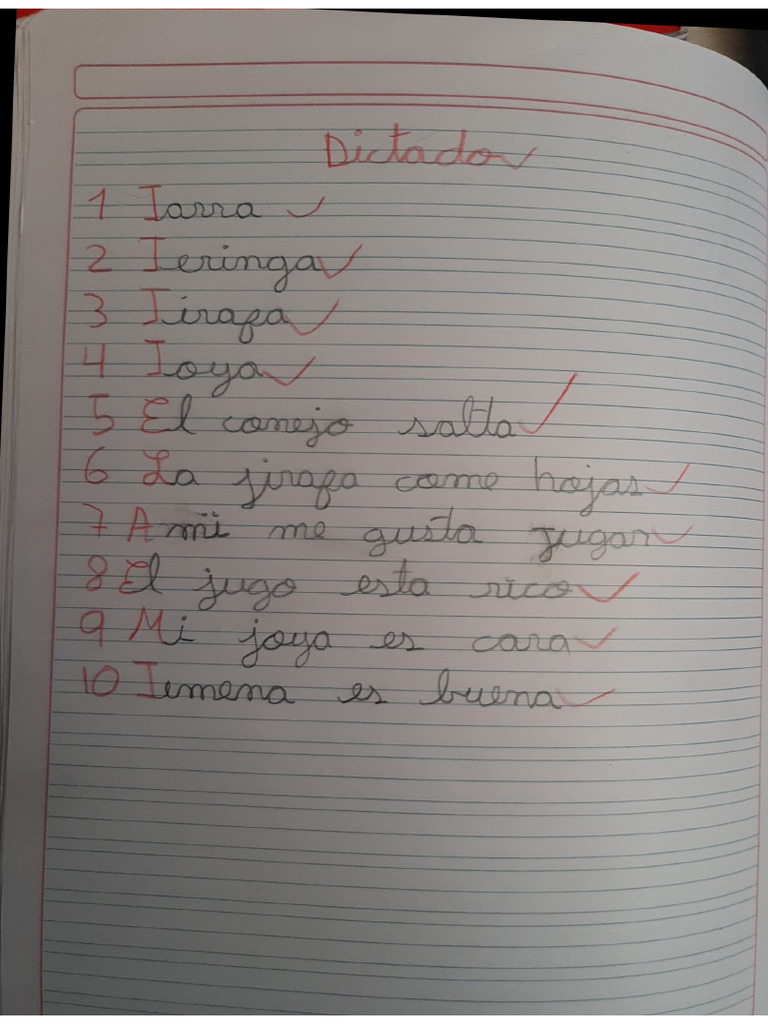 Dictado
1 Jarra
2 Jeringa
3 Jirafa
4 Joya
5 El conejo salta
6 La jirafa come hojas
7 A mí me gusta jugar
8 El jugo esta rico
9 Mi joya es cara
10 Jemena es buena